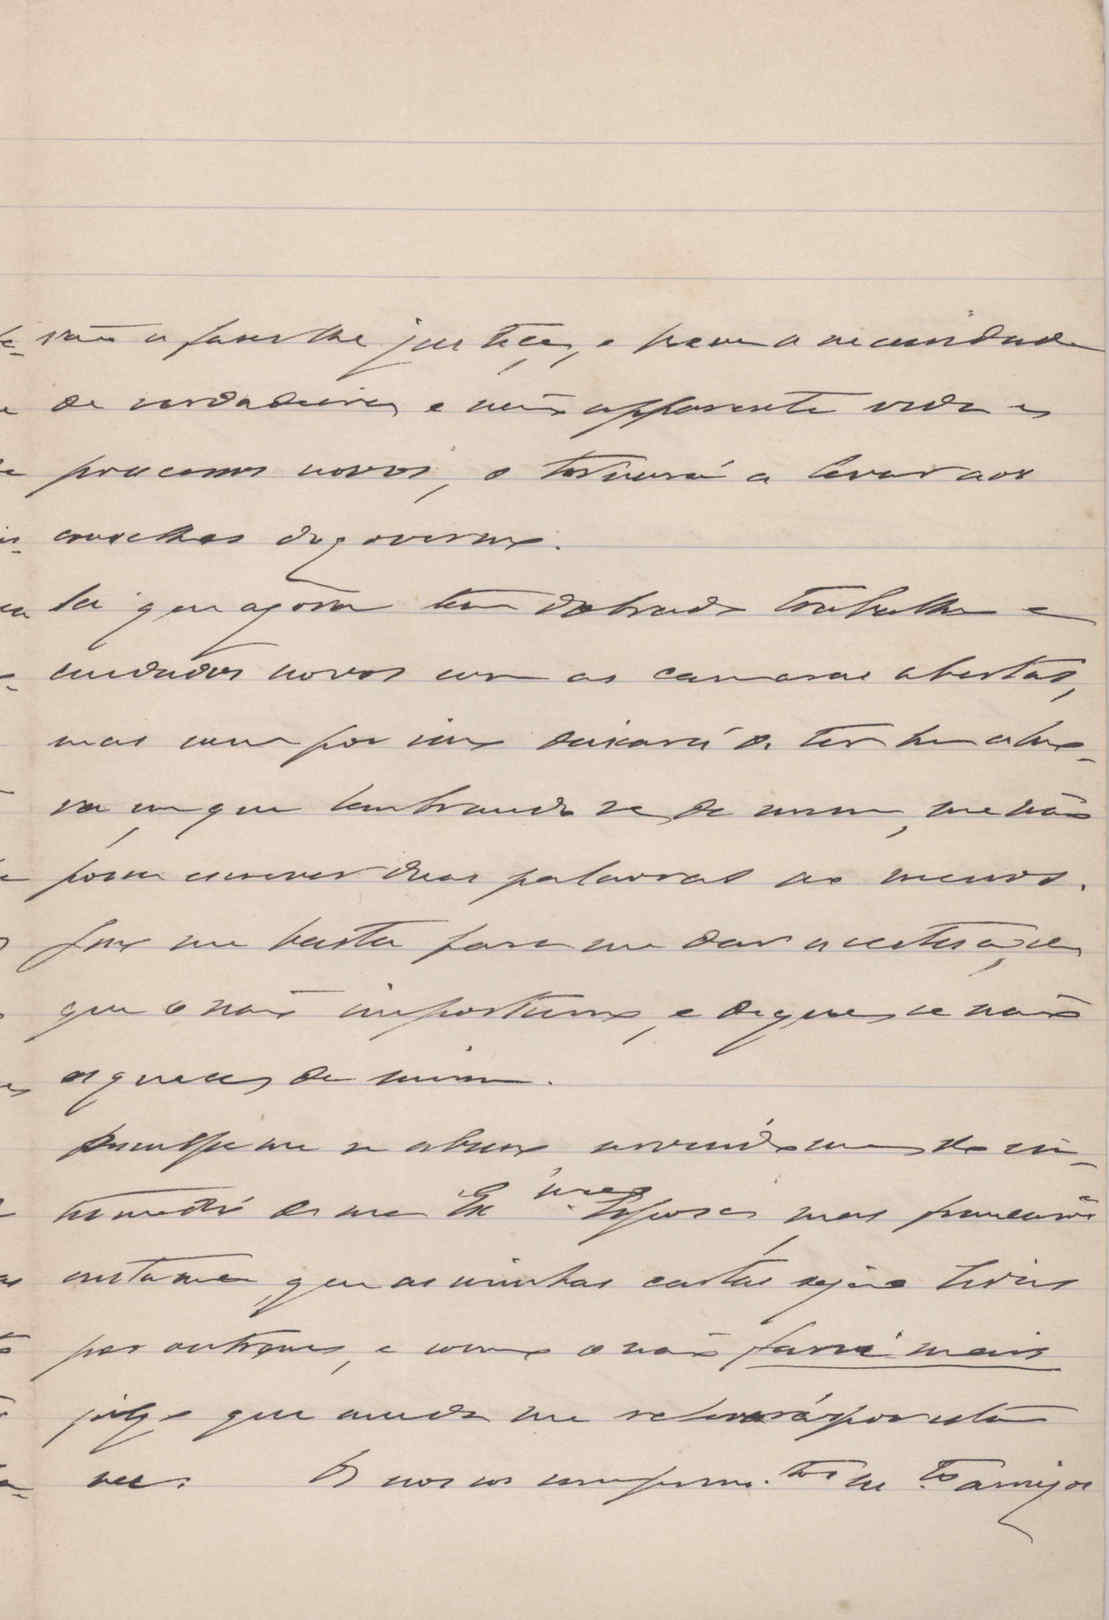 vão a fazer lhe justiça, e para a necessidade
de verdadeira e não apparente vida e
processos novos, o tornará a levar aos
conselhos do governo.
Sei que agora tem dobrado trabalho e
cuidados novos com as camaras abertas,
mas nem por isso deixará de ter hum
em que lembrando se de mim, me não
possa escrever duas palavras ao menos.
Isso me basta para me dar a certesa, de
que o não importuno, e de que se não
esquece de mim.
Desculpe me se abuso
de sua Ex.ma Esposa, mas
que as minhas cartas sejão lidas
por outrem, e como o não farei mais
julgo que ainda me relevará por esta
vez. Os nossos comprim.tos m.to amigos